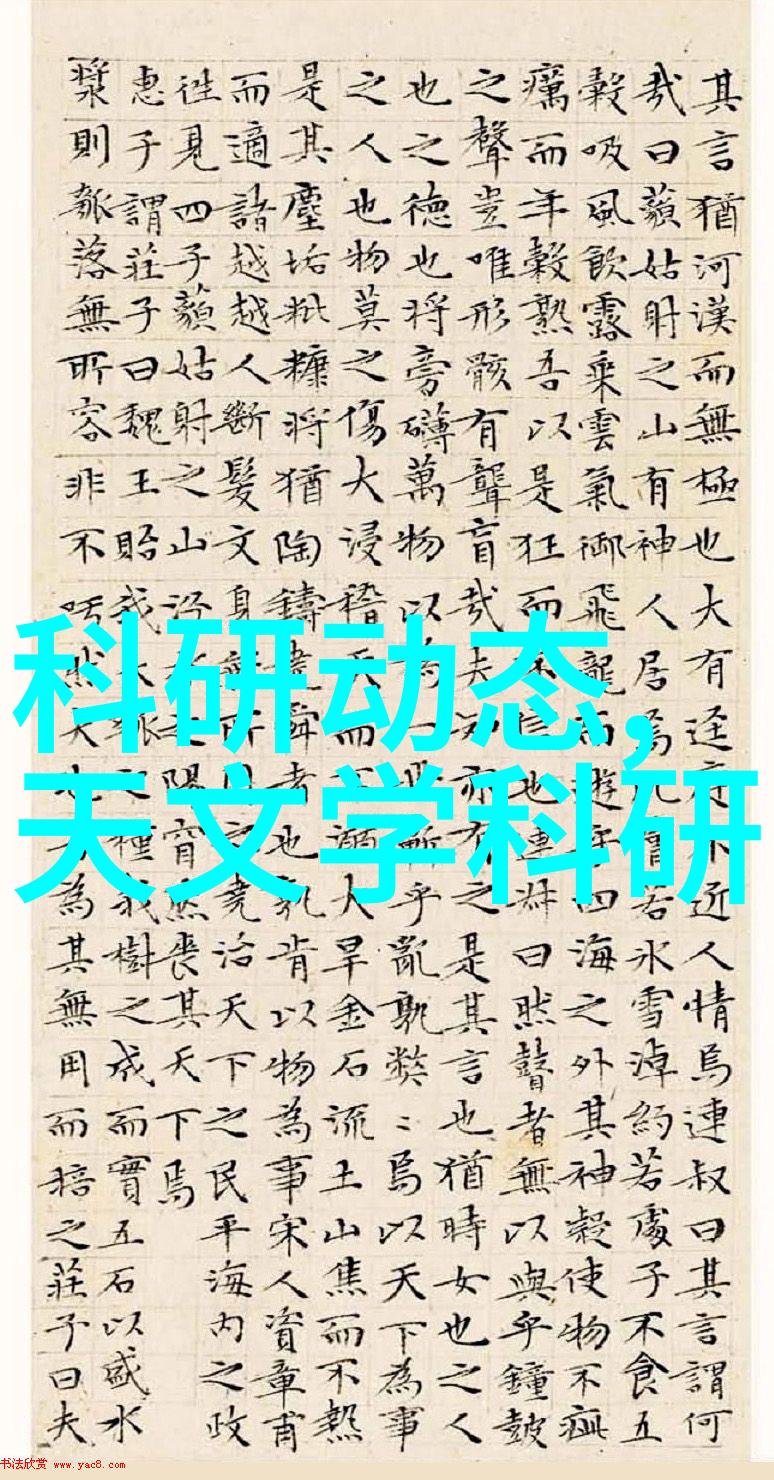 其言猶河漢而無極也大有迳庭不近人情焉連叔曰其言謂何
哉曰藐姑射之山有神人居焉肌膚若氷雪淖約若處子不食五
穀吸風飲露乘雲氣御飛龍而遊乎四海之外其神凝使物不疵
癘而年穀熟吾以是狂而不信也連叔曰然瞽者無以與乎鐘鼓
之聲豈唯形骸有聾盲哉夫知亦有之是其言也猶時女也之人
也之德也將旁礴萬物以為一世蘄乎亂孰弊〻焉以天下為事
之人也物莫之傷大浸稽天而不溺大旱金石流土山焦而不熱
是其塵垢粃糠將猶陶鑄堯舜者也孰肯以物為事宋人資章甫
而適諸越越人斷髮文身無所用之堯治天下之民平海内之政
往見四子藐姑射之山汾水之陽窅然喪其天下焉
惠子謂莊子曰魏王貽我大瓠之種我樹之成而實五石以盛水
漿則瓠落無所容非不呺然大也吾為其無用而掊之莊子曰夫
科研动态,
天文学科研
书法欣赏 www.yac8.com